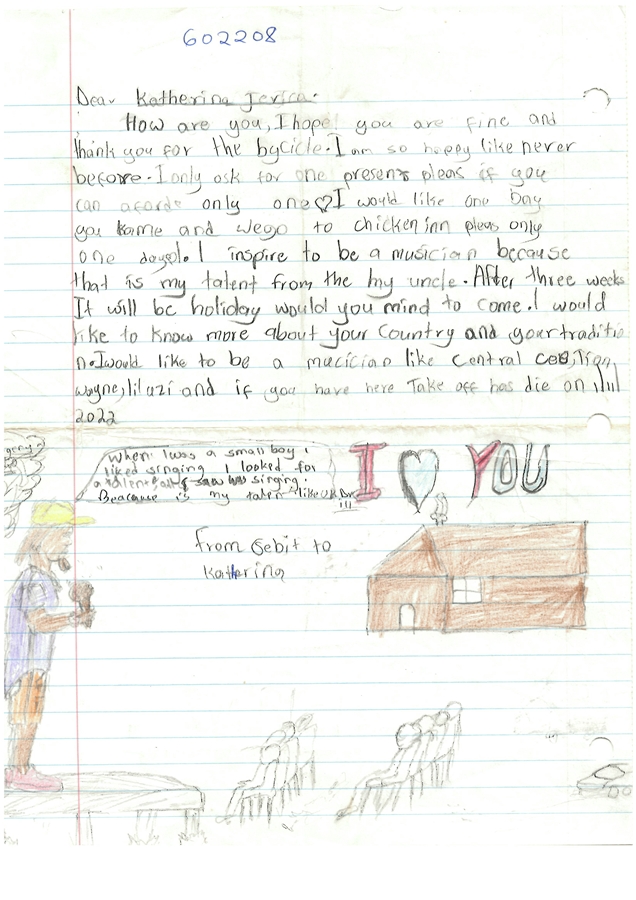 602208
Dear Katherina Jerica.
How are you, I hope you are fine and
thank you for the bycicle. I am so happy like never
before. I only ask for one present pleas if you
can aforde only one I would like one Day
you kame and wego to chicken inn pleas only
one day. I inspire to be a musician because
that is my talent from the my uncle. After three weeks
It will be holiday would you mind to come. I would
like to know more about your Country and your traditio
n. I would like to be a mucician like Central
wayne, lil uzi and if you have here Take off has die on
2022
When I was a small boy I
liked singing I looked for
a talent singing.
Beacause is my talen like
I YOU
from Sebit to
Katherina